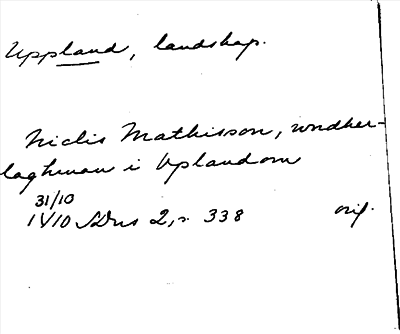 Uppland, landskap.
Niclis Mathisson, wndher-
laghman i Vplandom
31/10
SDns 2, s. 338 orig.